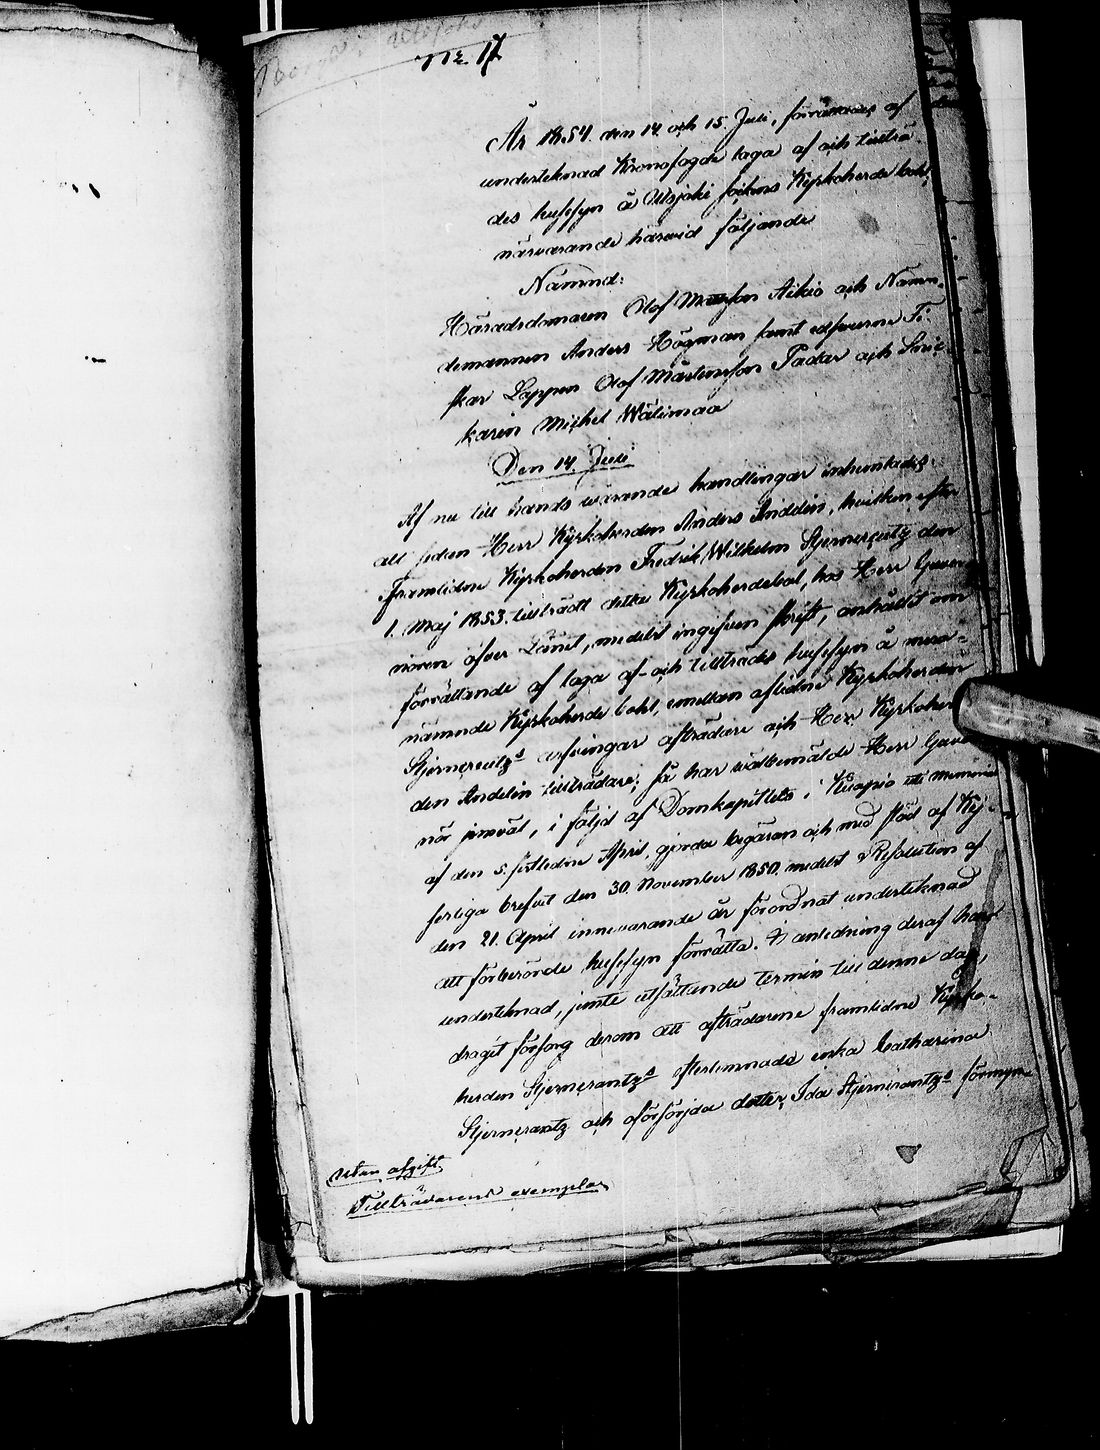 No. 17
År 1854. den 14 och 15. Juli, förrättades af
undertecknad Kronofogde laga af och tillträ-
des husesyn å Utsjoki sokens Kyrkoherde bohl,
närvarande härvid följande
Nämnd:
Häradsdomaren Olof Mattsson Aikio och Nämn-
demannen Anders Högman samt edsvurne Fi-
skar Lappen Olof Mårtensson Padar och Snic-
karen Michel Wälimaa
Den 14 Juli
Af nu till hands warande handlingar inhemtades:
att sedan Herr Kyrkoherden Anders Andelin, hvilken efter
Framlidne Kyrkoherden Fredrik Wilhelm Stjernercreutz den
1. Maj 1853. tillträdt detta Kyrkoherdebol, hos Herr Guver-
nören öfver Länet, medelst ingifven skrift, anhållit om
förrättande af laga af- och tillträdes husesyn å mera-
nämnde Kyrkoherde bohl, emellan aflidne Kyrkoherden
Stjerncreutz's arfvingar afträdare och Herr Kyrkoher-
den Andelin tillträdare; så har wälbemälde Herr Guver-
nör jemväl, i följd af Domkapitlets i Kuopio uti memorial
af den 5. sistledne April, gjorda begäran och med stöd af Kej-
serliga brefvet den 30. November 1850, medelst Resolution af
den 21. April innevarande år förordnat undertecknad
att förberörde husesyn förrätta. I anledning deraf har
undertecknad, jemte utsättande termin till denne dag,
dragit försorg derom att afträdarene framlidne Kyrko-
herden Stjerncrantz's efterlemnade enka Catharina
Stjerncrantz och oförsörjda dotter Ida Stjerncrantz's förmyn-
Utan afgift
Tillträdarens exemplar